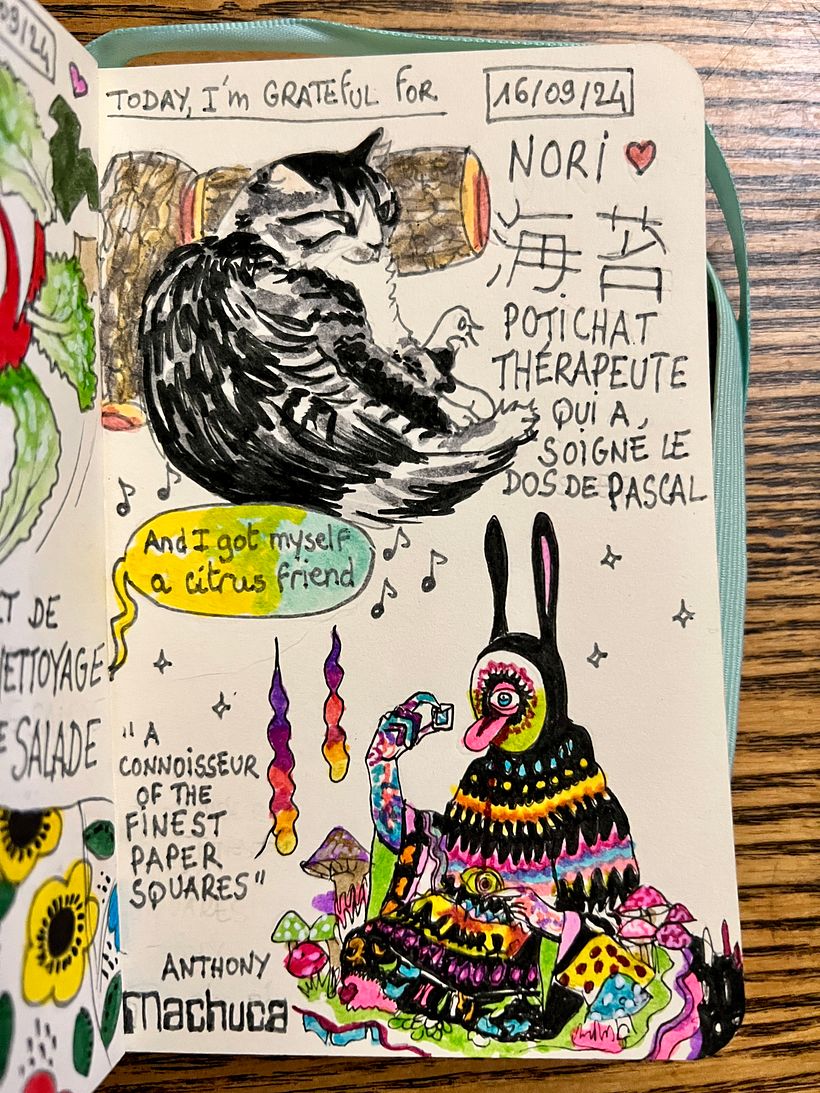 09/24
ET DE
NETTOYAGE
E SALADE
TODAY, I'm GRATEFUL FOR
16/09/24
NORI
海
POTICHAT
THÉRAPEUTE
QUI A
SOIGNÉ LE
DOS DE PASCAL
And I got myself
a citrus friend
"A
CONNOISSEUR
OF THE
FINEST
PAPER
SQUARES"
ANTHONY
Machuca